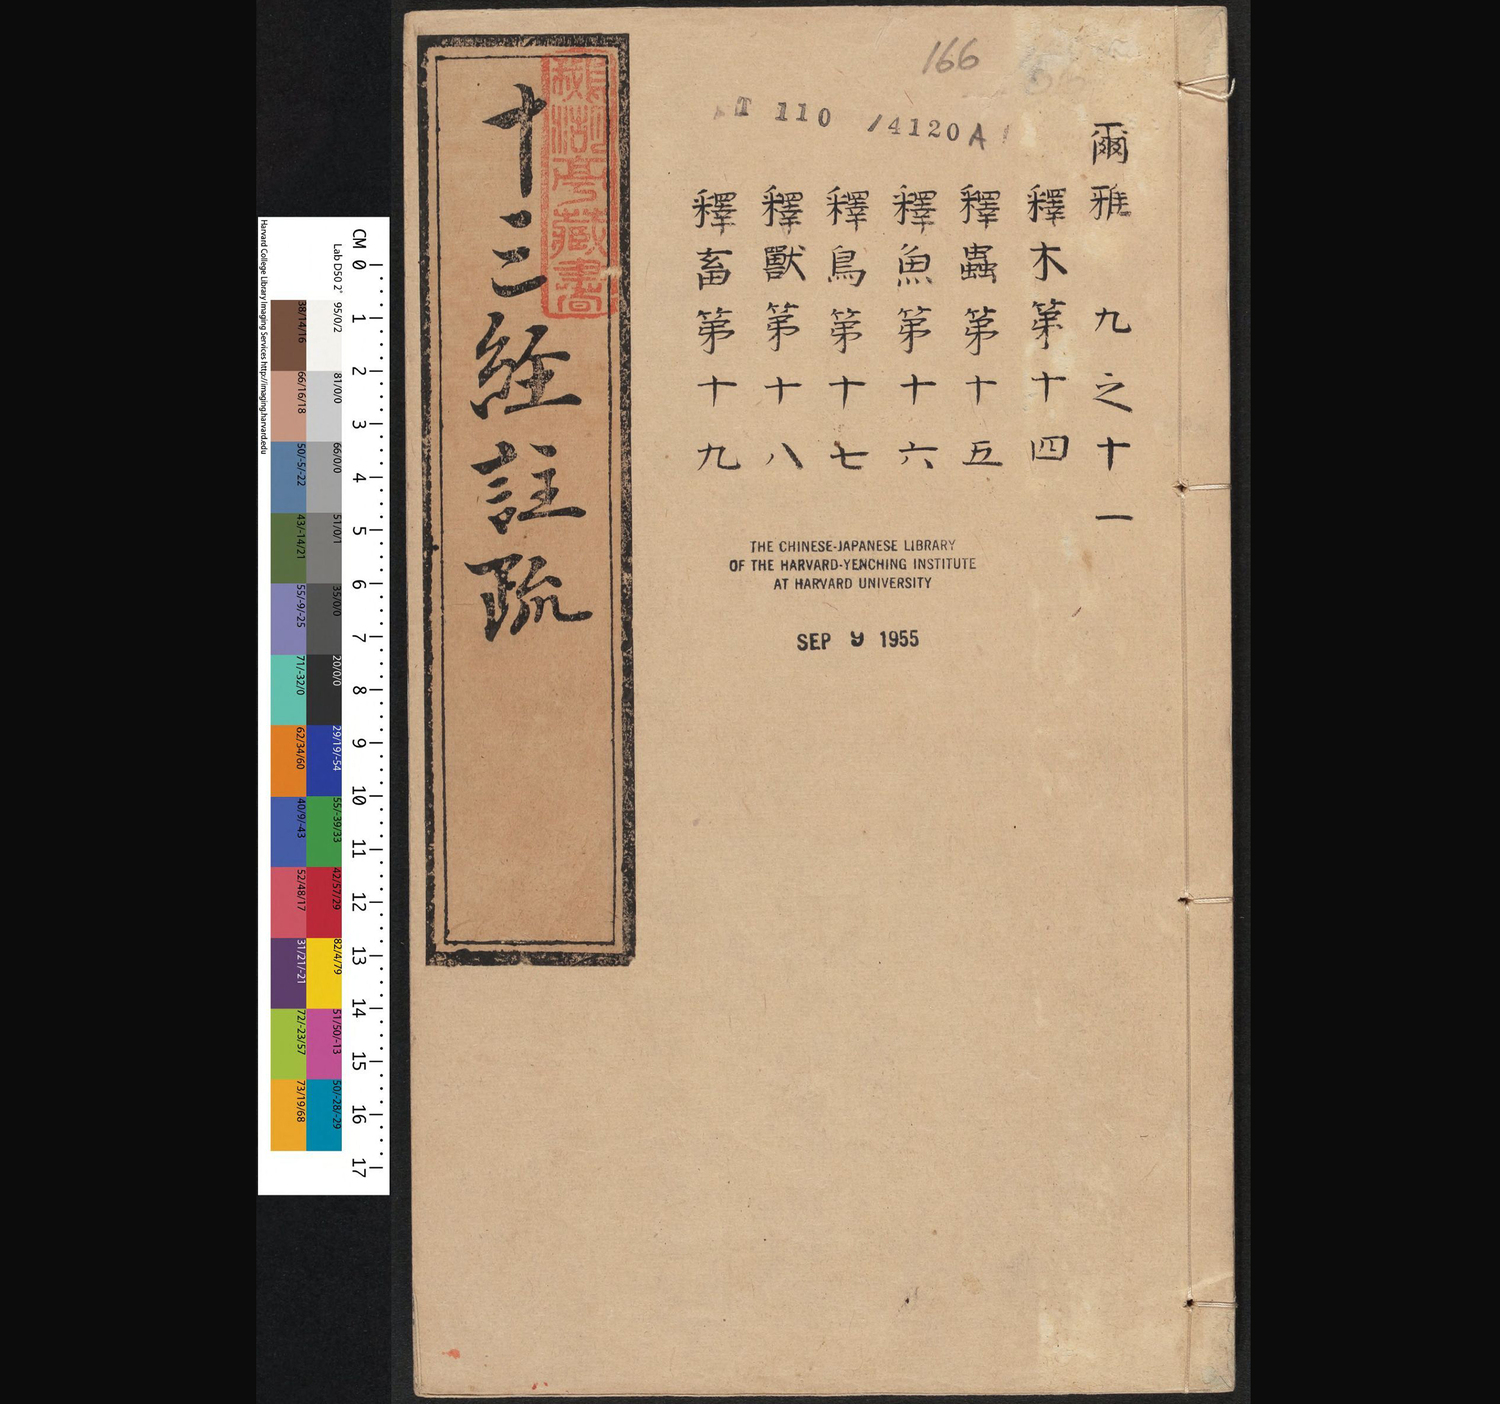 166
T 110 /4120A
爾雅 九之十一
釋木第十四
釋蟲第十五
釋魚第十六
釋鳥第十七
釋獸第十八
釋畜第十九
THE CHINESE-JAPANESE LIBRARY
OF THE HARVARD-YENCHING INSTITUTE
AT HARVARD UNIVERSITY
SEP 9 1955
十三經註疏
亭藏書
CM 0 1 2 3 4 5 6 7 8 9 10 11 12 13 14 15 16 17
Lab D50 2° 95/0/2 81/0/0 66/0/0 51/0/1 35/0/0 20/0/0 29/19/-54 55/-39/33 42/57/29 82/4/79 51/50/-13 50/-28/-29
38/14/16 66/16/18 50/-5/-22 43/-14/21 55/-9/-25 71/-32/0 62/34/60 40/9/-43 52/48/17 31/21/-21 72/-23/57 73/19/68
Harvard College Library Imaging Services http://imaging.harvard.edu